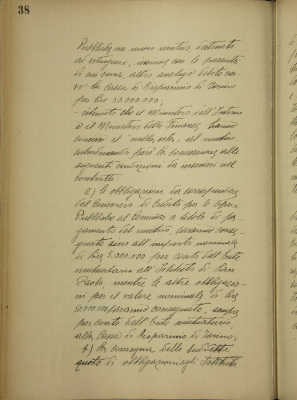 38
Pubbliche un nuovo mutuo, destinato
ad estinguere, insieme con le
di cui sopra, altro analogo debito ver-
so la Cassa di Risparmio di Torino
per Lire 50.000.000,
- ritenuto che il Ministero dell'Interno
e il Ministero delle Finanze hanno
concesso il nulla osta al mutuo
subordinando però la concessione alle
seguenti condizioni da inserirsi nel
contratto:
a) le obbligazioni da corrispondersi
dal Consorzio di Credito per le Opere
Pubbliche al Comune a titolo di pa-
gamento del mutuo, saranno conse-
gnate sino all'importo nominale
di Lire 5.000.000 per conto dell'Ente
mutuatario all'Istituto di San
Paolo, mentre le altre obbligazio-
ni per il valore nominale di Lire
saranno consegnate, sempre
per conto dell'Ente mutuatario,
alla Cassa di Risparmio di Torino;
b) la consegna delle suddette
quote di obbligazioni agli Istituti